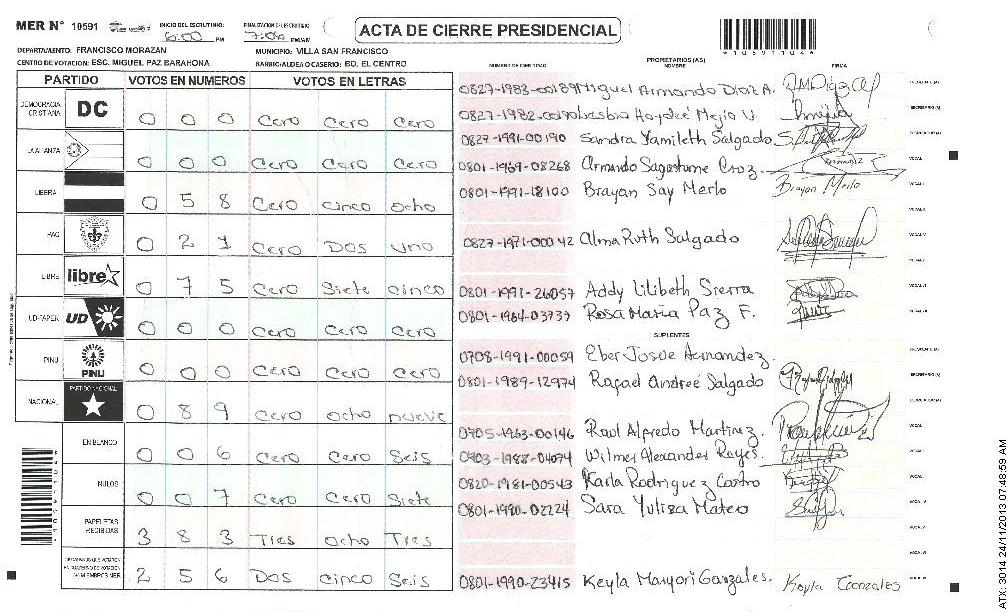 MER N° 10591 INICIO DEL ESCRUTINIO: 6:00 PM FINALIZACION DEL ESCRUTINIO: 7:06 PM/AM ACTA DE CIERRE PRESIDENCIAL
DEPARTAMENTO: FRANCISCO MORAZAN MUNICIPIO: VILLA SAN FRANCISCO
CENTRO DE VOTACION: ESC. MIGUEL PAZ BARAHONA BARRIO/ALDEA O CASERIO: BO. EL CENTRO
PROPIETARIOS (AS)
NUMERO DE IDENTIDAD NOMBRE FIRMA
PARTIDO VOTOS EN NUMEROS VOTOS EN LETRAS
DEMOCRACIA CRISTIANA DC 0 0 0 Cero Cero Cero
LA ALIANZA 0 0 0 Cero Cero Cero
LIBERAL 0 5 8 Cero cinco ocho
PAC 0 2 1 Cero Dos uno
LIBRE libre 0 7 5 Cero Siete cinco
UD-FAPER UD 0 0 0 Cero Cero Cero
PINU PINU 0 0 0 Cero Cero Cero
NACIONAL PARTIDO NACIONAL 0 8 9 Cero ocho nueve
EN BLANCO 0 0 6 Cero Cero Seis
NULOS 0 0 7 Cero Cero Siete
PAPELETAS RECIBIDAS 3 8 3 Tres ocho Tres
CIUDADANOS QUE VOTARON EN CUADERNO DE VOTACION (+) MIEMBROS MER 2 5 6 Dos cinco Seis
0827-1983-00189 Miguel Armando Diaz A.
0827-1982-00190 Lesbia Haydeé Mejia V.
0827-1991-00190 Sandra Yamileth Salgado
0801-1969-08268 Armando Sagastume Cruz
0801-1991-18100 Brayan Say Merlo Brayan Merlo
0827-1971-00042 Alma Ruth Salgado
0801-1991-26057 Addy Lilibeth Sierra
0801-1964-03739 Rosa Maria Paz F.
SUPLENTES
0708-1991-00059 Eber Josue Hernandez
0801-1989-12974 Rafael Andreé Salgado
0705-1963-00146 Raul Alfredo Martinez.
0903-1988-04074 Wilmer Alexander Reyes.
0820-1981-00543 Karla Rodriguez Castro
0801-1980-02224 Sara Yulissa Mateo
0801-1990-23415 Keyla Maryori Gonzales. Keyla Gonzales
ATX:3014 24/11/2013 07:48:59 AM